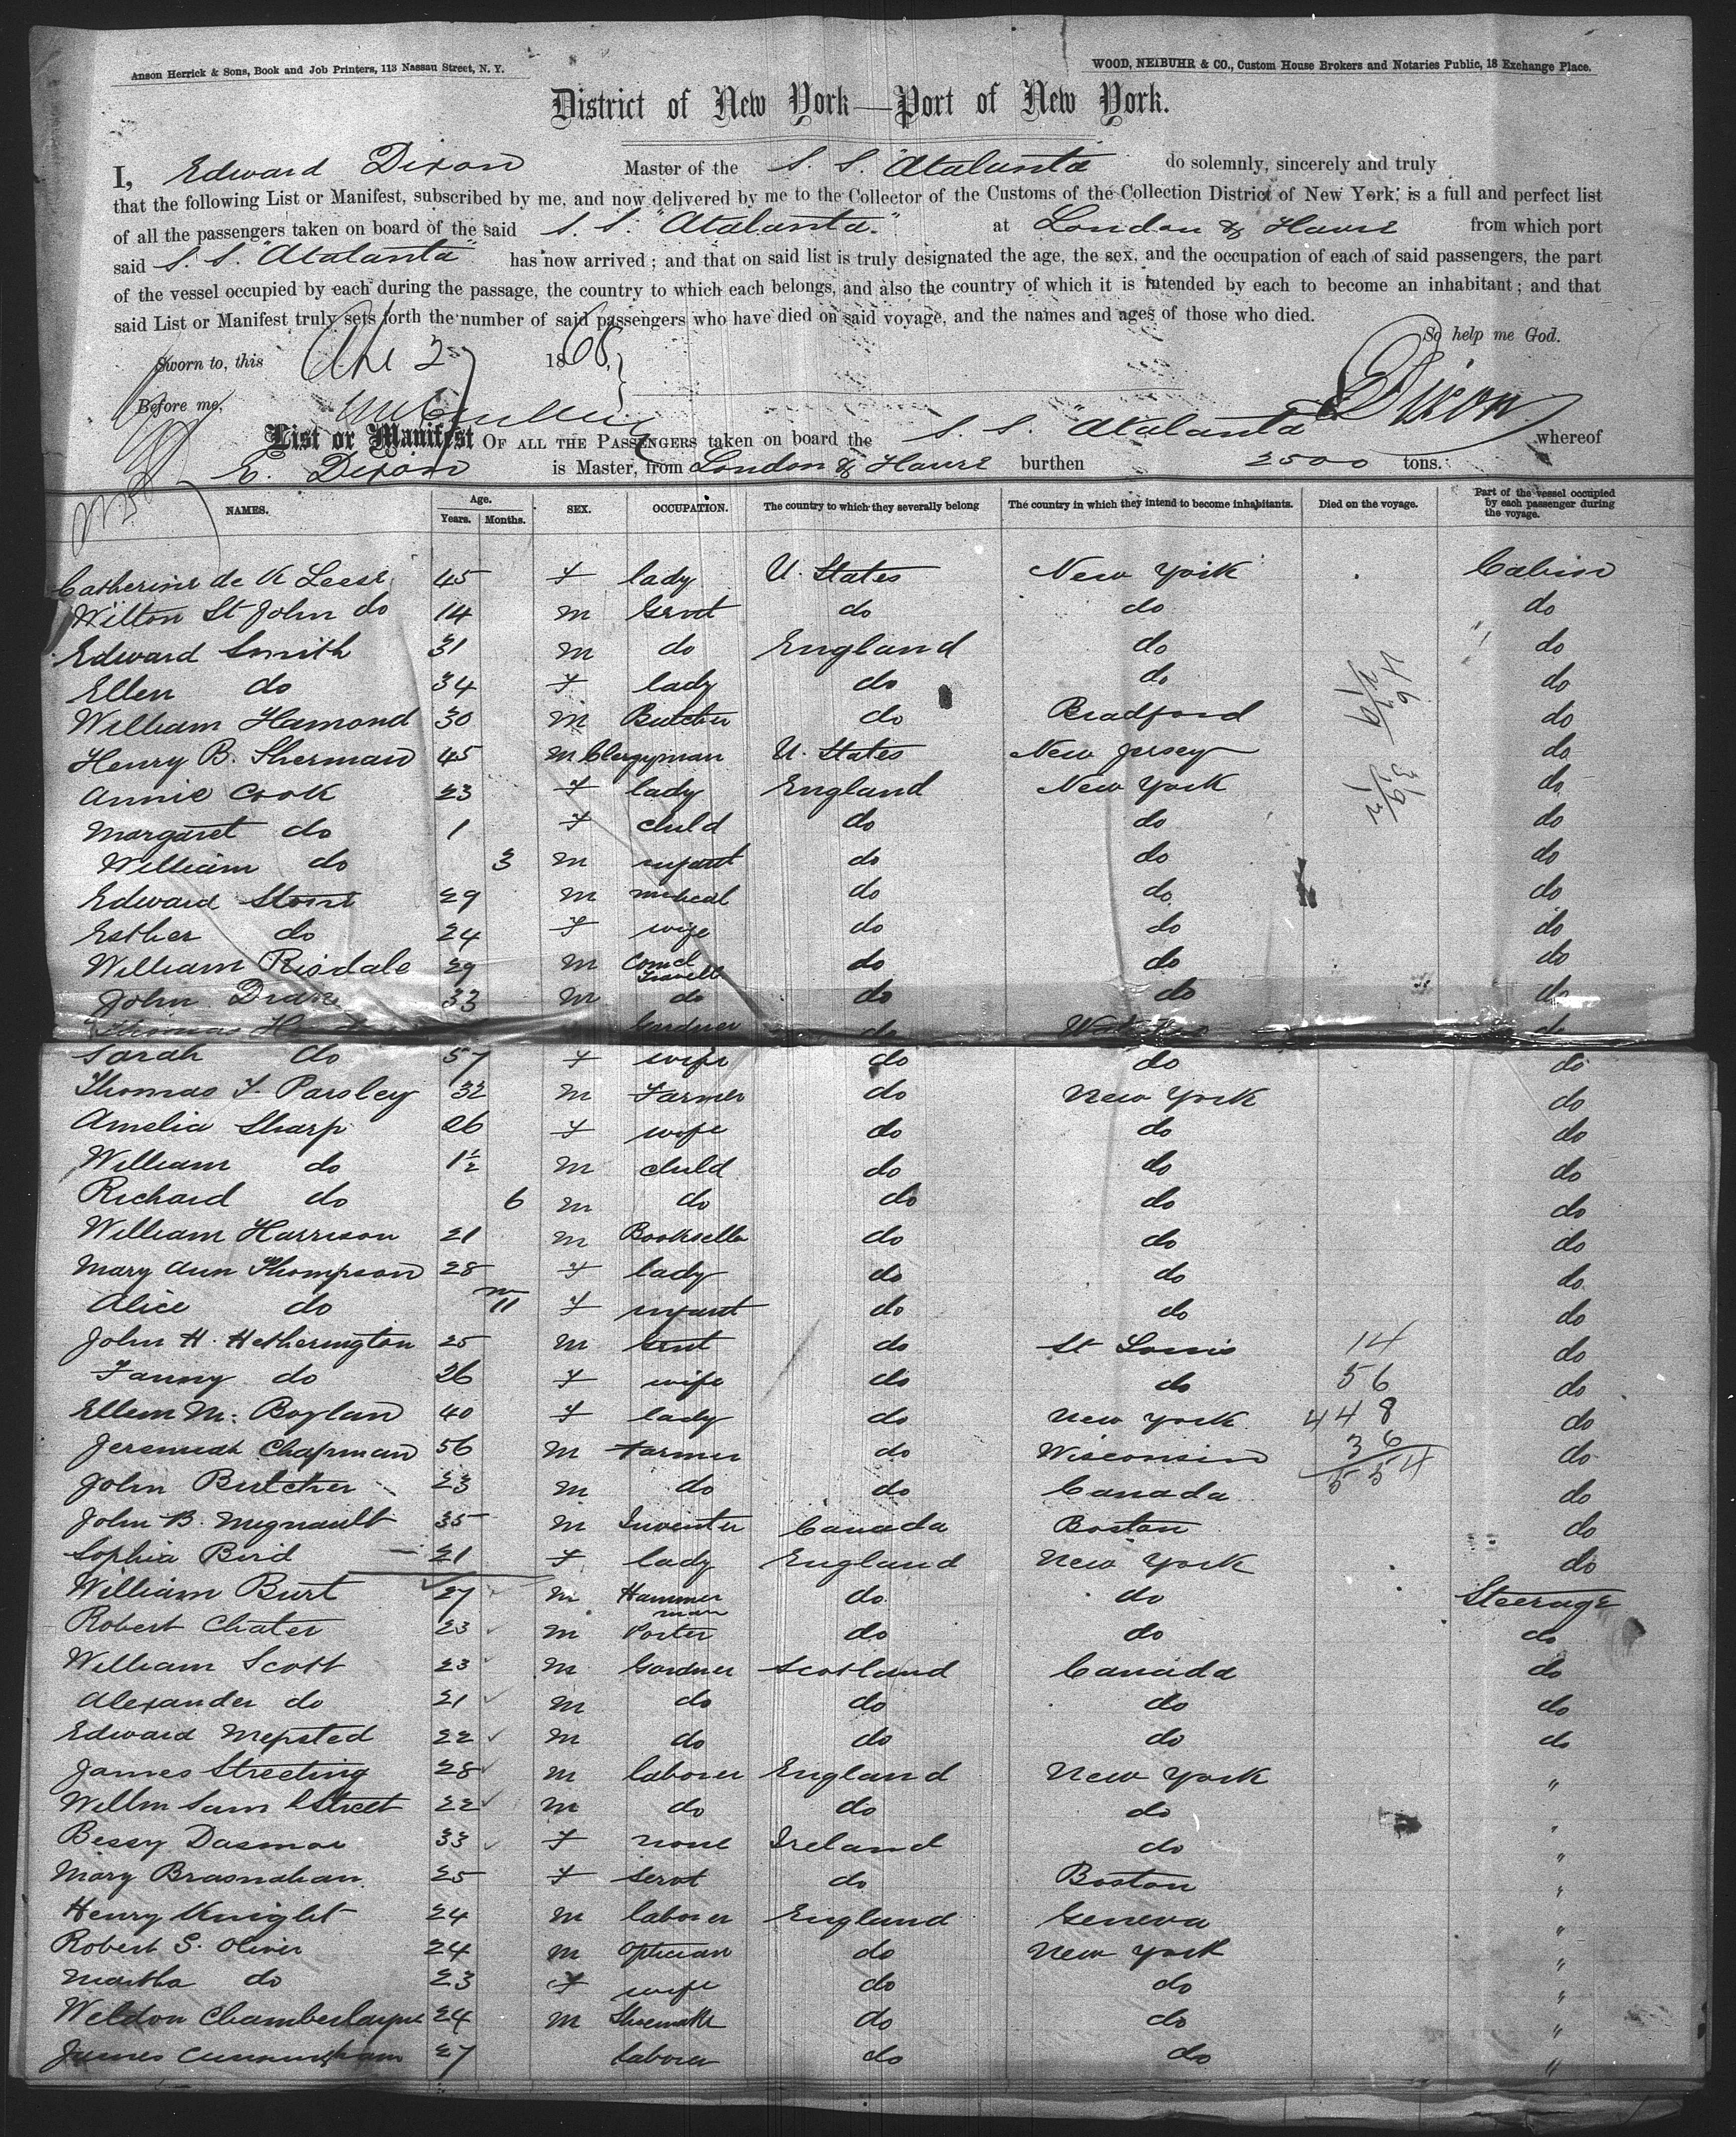 Anson Herrick & Sons, Book and Job Printers, 113 Nassau Street, N. Y.
WOOD, NEIBUHR & CO., Custom House Brokers and Notaries Public, 18 Exchange Place.
District of New York—Port of New York.
I, Edward Dixon Master of the S. S. "Atalanta" do solemnly, sincerely and truly
that the following List or Manifest, subscribed by me, and now delivered by me to the Collector of the Customs of the Collection District of New York, is a full and perfect list
of all the passengers taken on board of the said S. S. "Atalanta" at London & Havre from which port
said S. S. "Atalanta" has now arrived; and that on said list is truly designated the age, the sex, and the occupation of each of said passengers, the part
of the vessel occupied by each during the passage, the country to which each belongs, and also the country of which it is intended by each to become an inhabitant; and that
said List or Manifest truly sets forth the number of said passengers who have died on said voyage, and the names and ages of those who died.
So help me God.
Sworn to, this 27 1868
E Dixon
Before me,
List or Manifest OF ALL THE PASSENGERS taken on board the S. S. "Atalanta" whereof
E. Dixon is Master, from London & Havre burthen 2500 tons.
NAMES. Age. Years. Months. SEX. OCCUPATION. The country to which they severally belong The country in which they intend to become inhabitants. Died on the voyage. Part of the vessel occupied by each passenger during the voyage.
Catherine de K Leese 45 F lady U. States New York Cabin
Wilton St John do 14 M Gent do do do
Edward Smith 31 M do England do do
Ellen do 34 F lady do do do
William Hamond 30 M Butcher do Bradford do
Henry B. Sherman 45 M Clergyman U. States New Jersey do
Annie Cook 23 F lady England New York do
Margaret do 1 F child do do do
William do 3 M infant do do do
Edward Stone 29 M medical do do do
Esther do 24 F wife do do do
William Risdale 29 M Comcl Travell do do do
John 33 M do do do do
Thomas Gardner do do
Sarah do 57 F wife do do do
Thomas F. Parsley 32 M Farmer do New York do
Amelia Sharp 26 F wife do do do
William do 1½ M child do do do
Richard do 6 M do do do do
William Harrison 21 M Bookseller do do do
Mary Ann Thompson 28 F lady do do do
Alice do 11 F infant do do do
John H. Hetherington 25 M Gent do St Louis 14 do
Fanny do 26 F wife do do 56 do
Ellen M. Boylan 40 F lady do New York 448 do
Jeremiah Chapman 56 M Farmer do Wisconsin 36 do
John Butcher 23 M do do Canada 554 do
John B. Mignault 35 M Inventer Canada Boston do
Sophia Bird 21 F lady England New York do
William Burt 27 M Hammer man do do Steerage
Robert Chater 23 M Porter do do do
William Scott 23 M Gardner Scotland Canada do
Alexander do 21 M do do do do
Edward Mepsted 22 M do do do do
James Streeting 28 M laborer England New York "
Willm Saml Street 22 M do do do "
Bessy 33 F none Ireland do "
Mary Brasnahan 25 F servt do Boston "
Henry Knight 24 M laborer England Geneva "
Robert S. Oliver 24 M Optician do New York "
Martha do 23 F wife do do "
Weldon Chamberlayne 24 M Shoemakr do do "
James Cunningham 27 laborer do do "